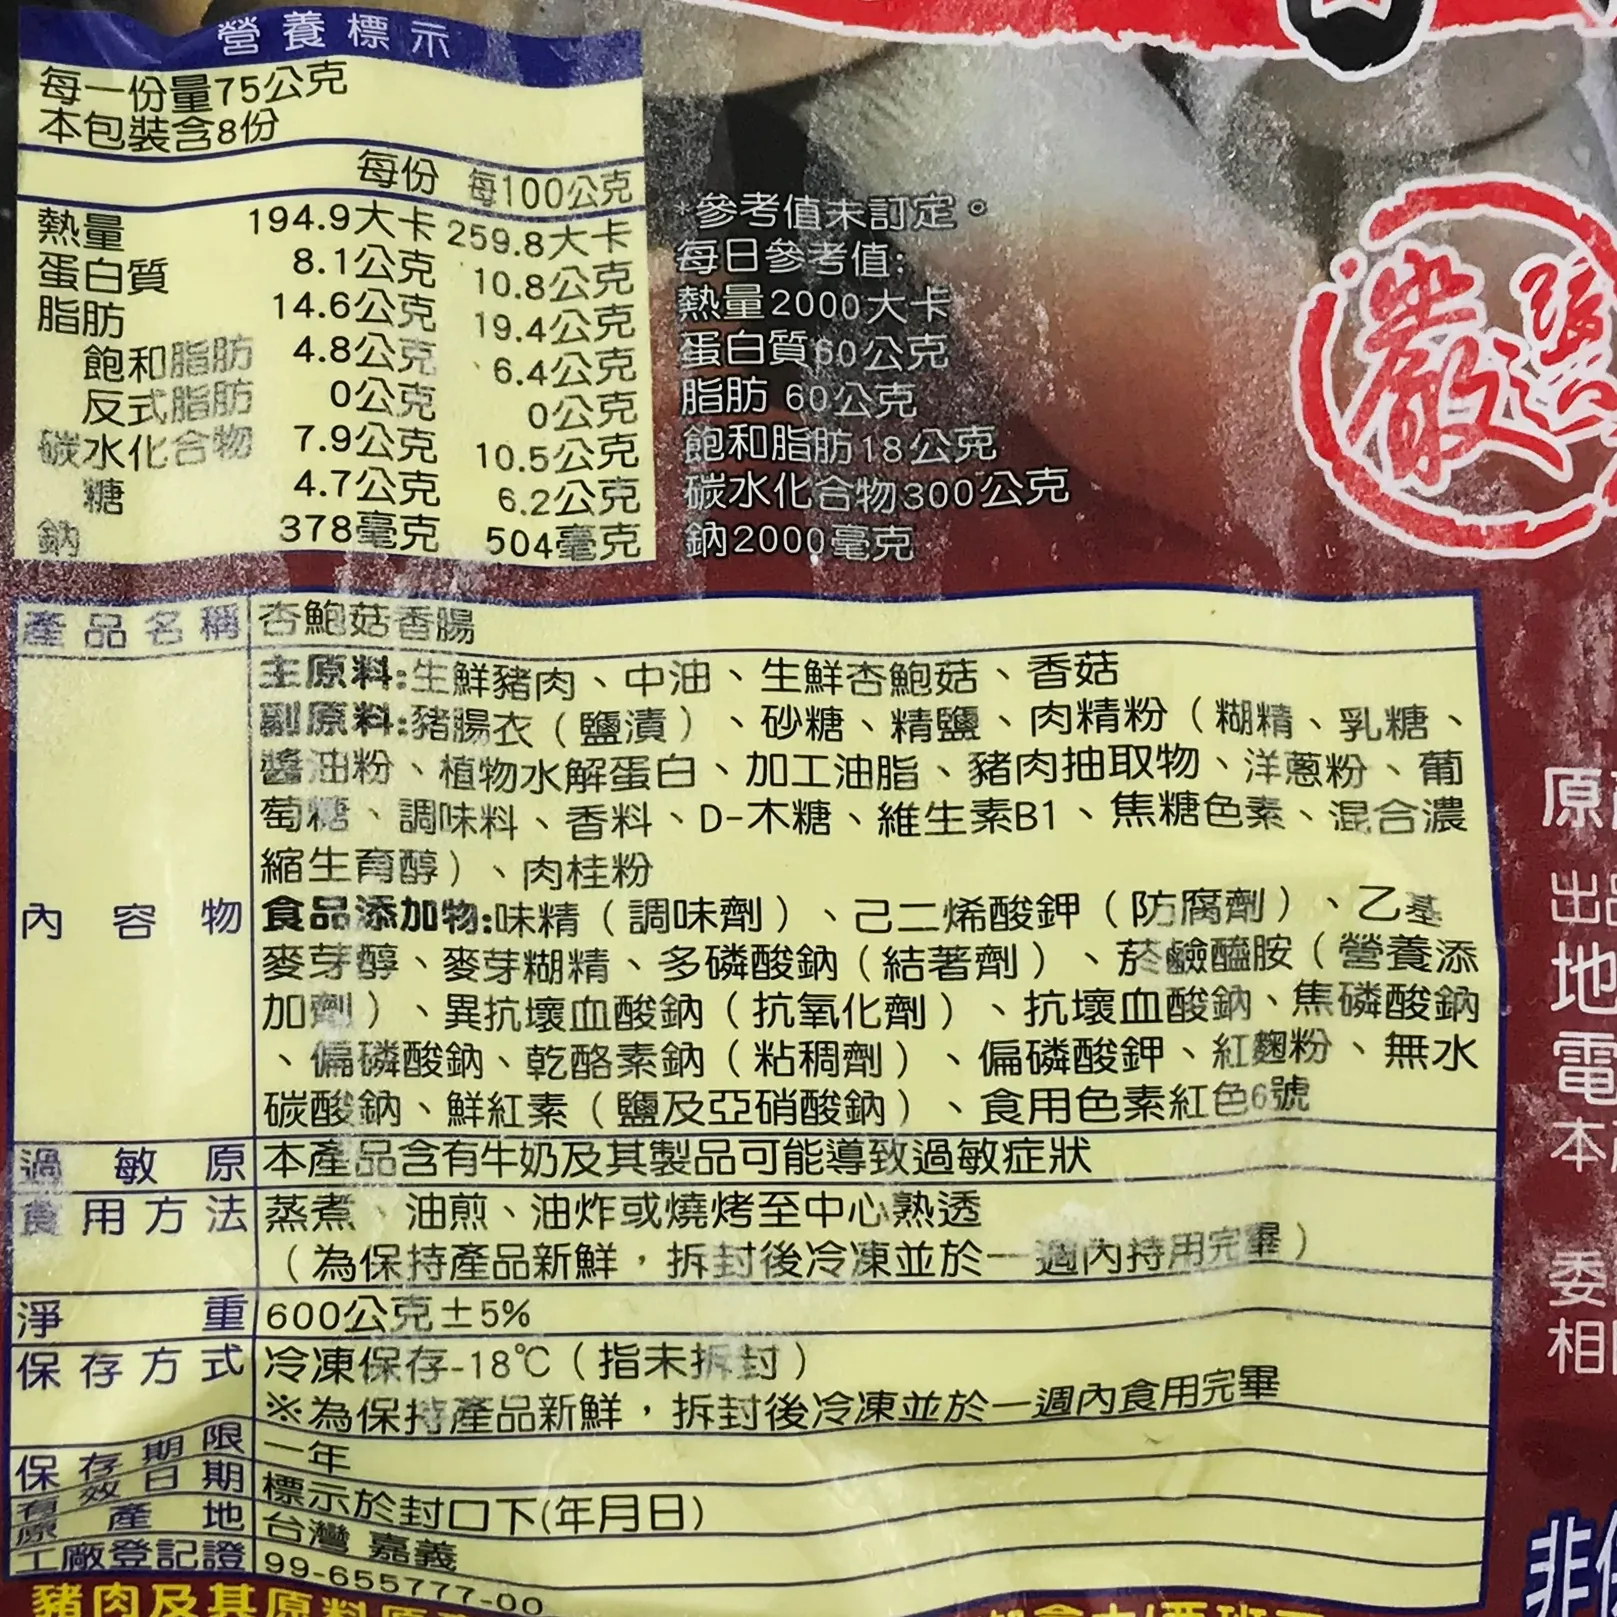 營養標示
每一份量75公克
本包裝含8份
每份 每100公克
熱量 194.9大卡 259.8大卡
蛋白質 8.1公克 10.8公克
脂肪 14.6公克 19.4公克
飽和脂肪 4.8公克 6.4公克
反式脂肪 0公克 0公克
碳水化合物 7.9公克 10.5公克
糖 4.7公克 6.2公克
鈉 378毫克 504毫克
*參考值未訂定。
每日參考值:
熱量2000大卡
蛋白質60公克
脂肪 60公克
飽和脂肪18公克
碳水化合物300公克
鈉2000毫克
嚴選
產品名稱 杏鮑菇香腸
內容物 主原料:生鮮豬肉、中油、生鮮杏鮑菇、香菇
副原料:豬腸衣(鹽漬)、砂糖、精鹽、肉精粉(糊精、乳糖、
醬油粉、植物水解蛋白、加工油脂、豬肉抽取物、洋蔥粉、葡
萄糖、調味料、香料、D-木糖、維生素B1、焦糖色素、混合濃
縮生育醇)、肉桂粉
食品添加物:味精(調味劑)、己二烯酸鉀(防腐劑)、乙基
麥芽醇、麥芽糊精、多磷酸鈉(結著劑)、菸鹼醯胺(營養添
加劑)、異抗壞血酸鈉(抗氧化劑)、抗壞血酸鈉、焦磷酸鈉
、偏磷酸鈉、乾酪素鈉(粘稠劑)、偏磷酸鉀、紅麴粉、無水
碳酸鈉、鮮紅素(鹽及亞硝酸鈉)、食用色素紅色6號
過敏原 本產品含有牛奶及其製品可能導致過敏症狀
食用方法 蒸煮、油煎、油炸或燒烤至中心熟透
(為保持產品新鮮,拆封後冷凍並於一週內持用完畢)
淨重 600公克±5%
保存方式 冷凍保存-18℃(指未拆封)
※為保持產品新鮮,拆封後冷凍並於一週內食用完畢
保存期限 一年
有效日期 標示於封口下(年月日)
原產地 台灣 嘉義
工廠登記證 99-655777-00
豬肉及其原料原
原
出品
地
電
本
委
相
非